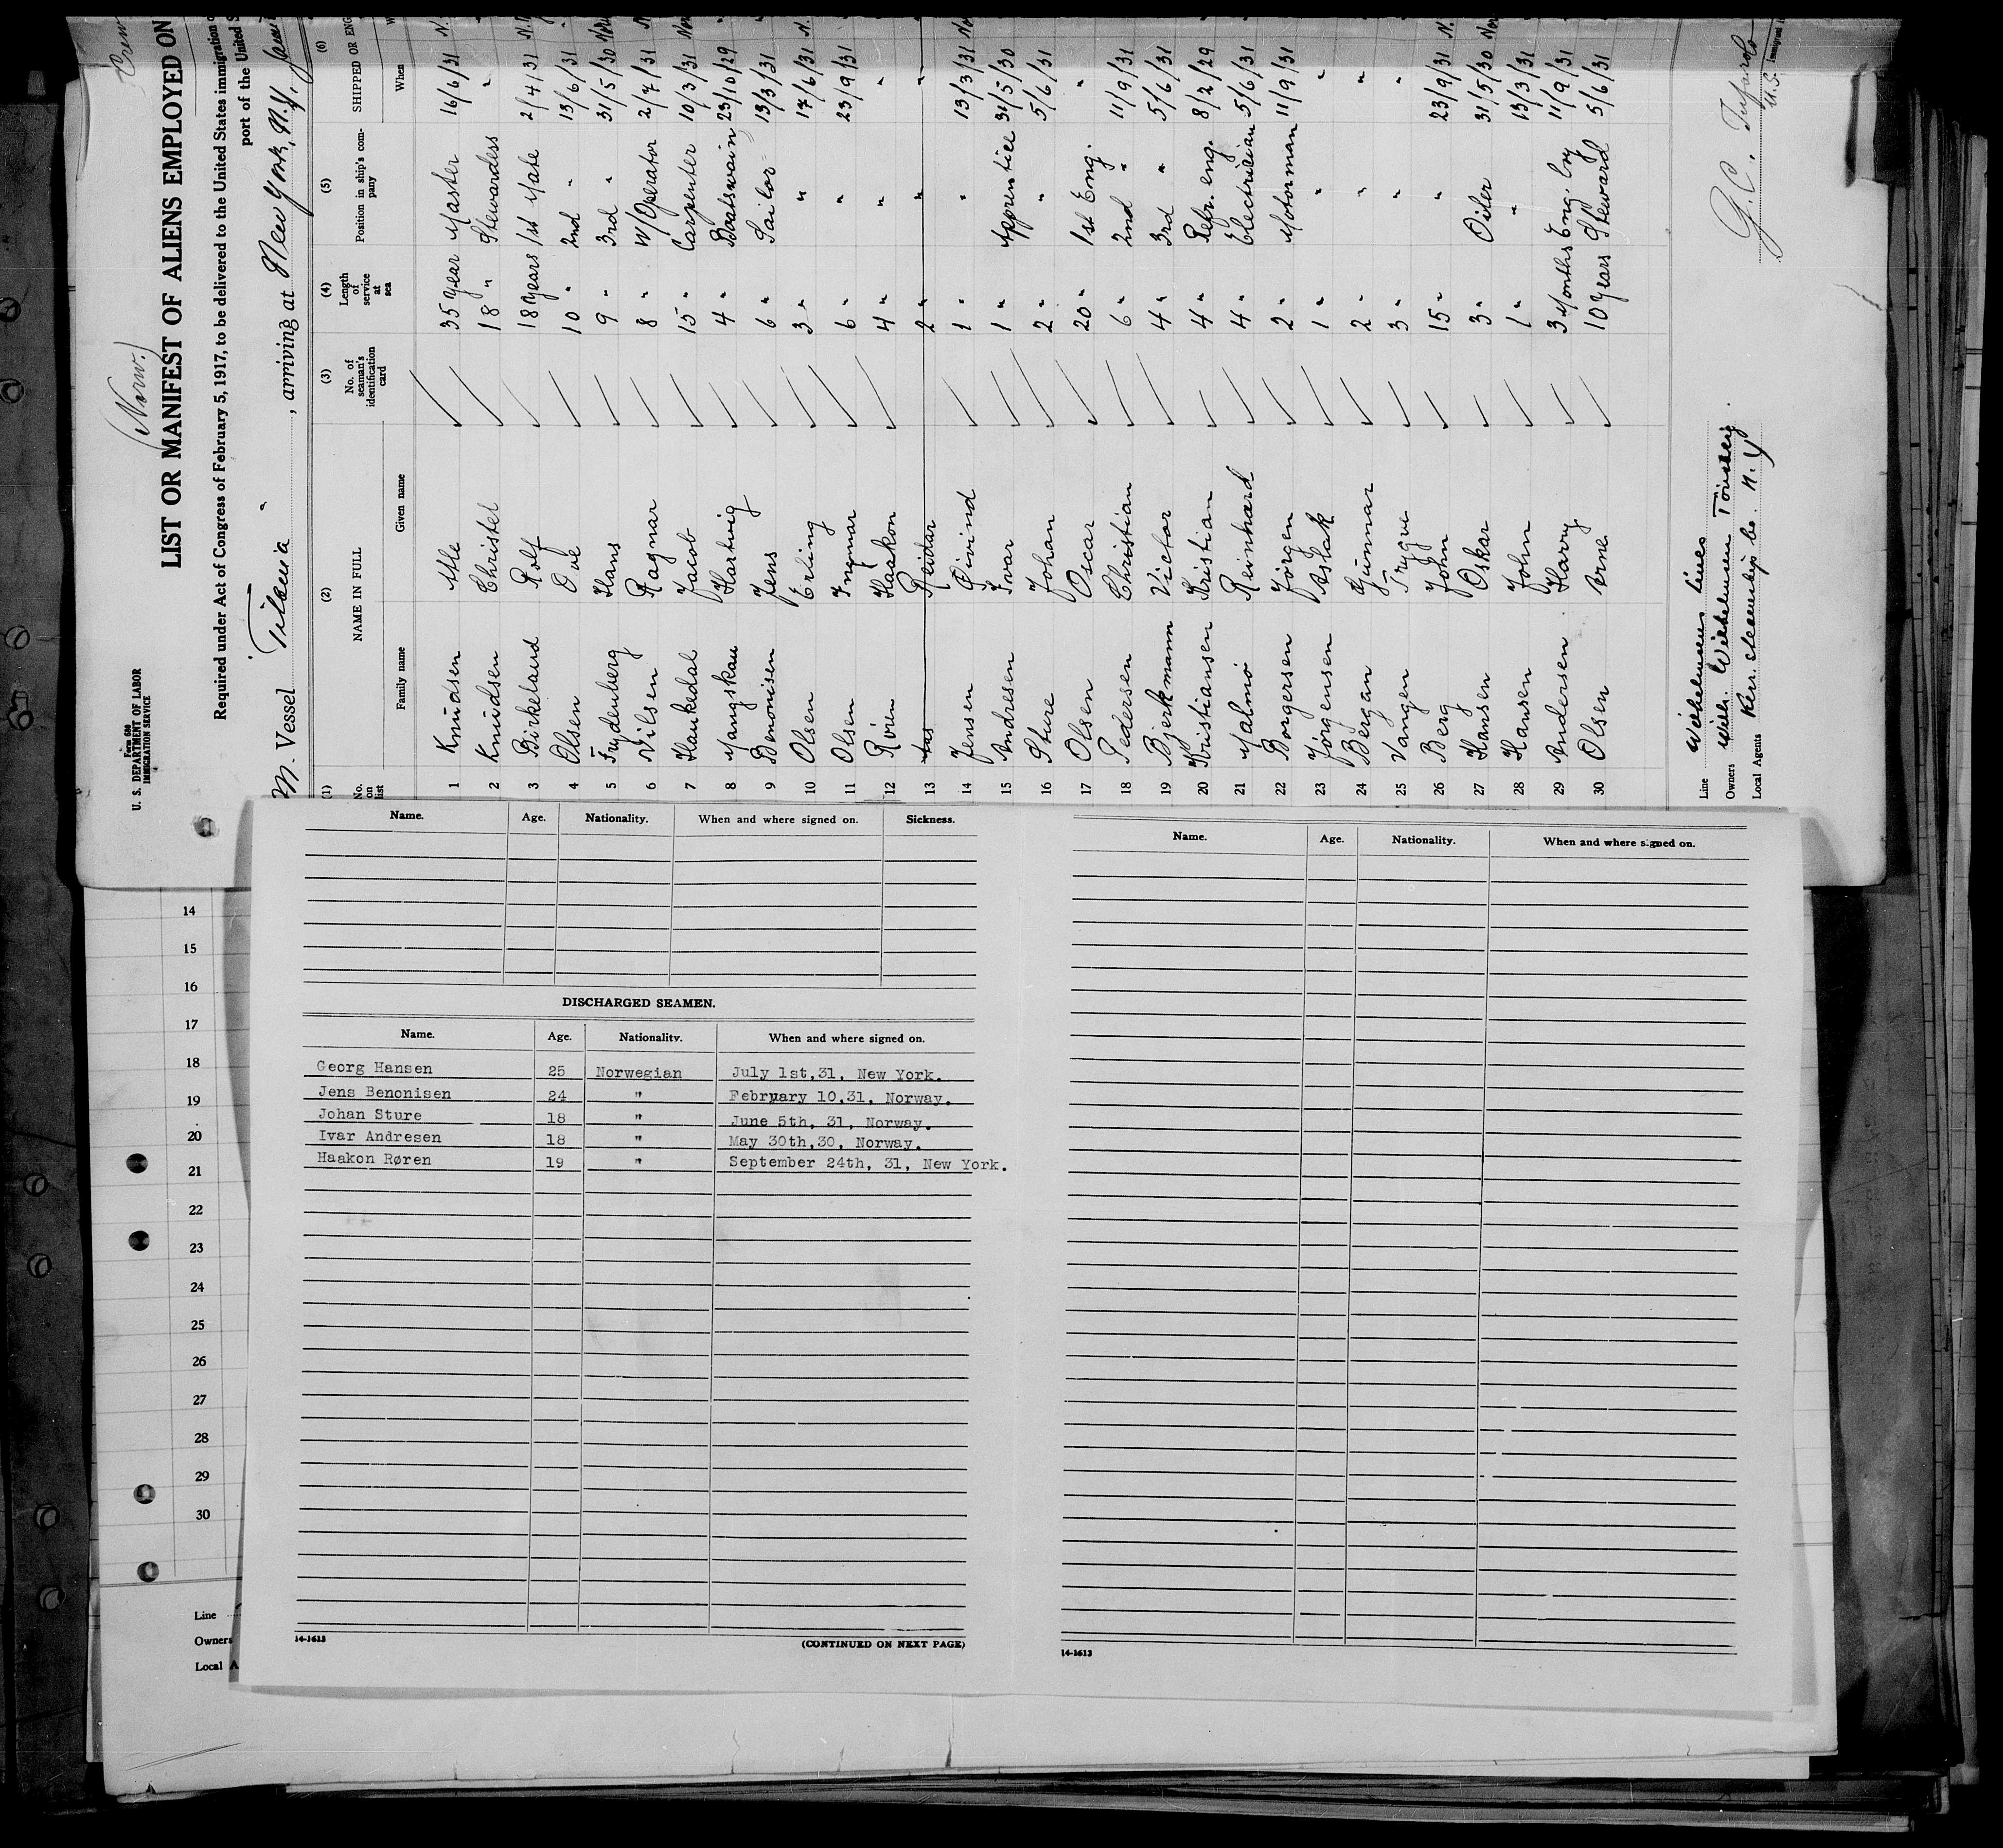 (Norw.)
Form 680
U. S. DEPARTMENT OF LABOR
IMMIGRATION SERVICE
LIST OR MANIFEST OF ALIENS EMPLOYED ON
Required under Act of Congress of February 5, 1917, to be delivered to the United States immigration
port of the United S
M. Vessel Titania, arriving at New York, N.Y.,
(1) (2) (3) (4) (5) (6)
No. on list NAME IN FULL No. of seaman's identification card Length of service at sea Position in ship's company SHIPPED OR ENG
Family name Given name When
1 Knudsen Atle 35 Year Master 16/6/31 N.
2 Knudsen Christel 18 " Stewardess "
3 Birkeland Rolf 18 Years 1st Mate 2/4/31
4 Olsen Ove 10 " 2nd " 13/6/31
5 Frydenberg Hans 9 " 3rd " 31/5/30 Nor
6 Nilsen Ragnar 8 " W/Operator 2/7/31
7 Haukedal Jacob 15 " Carpenter 10/3/31 Nor
8 Mangskau Hartvig 4 " Boatswain 23/10/29
9 Benonisen Jens 6 " Sailor 13/3/31
10 Olsen Erling 3 " " 17/6/31 N.
11 Olsen Ingmar 6 " " 23/9/31
12 Rören Haakon 4 " " "
13 Reidar 2 " " "
14 Jensen Öivind 1 " " 13/3/31 No
15 Andresen Ivar 1 " Apprentice 31/5/30
16 Sture Johan 2 " " 5/6/31
17 Olsen Oscar 20 " 1st Eng. "
18 Pedersen Christian 6 " 2nd " 11/9/31
19 Bjerkmann Victor 4 " 3rd " 5/6/31
20 Kristiansen Kristian 4 " Refr. eng. 8/2/29
21 Malmö Reinhard 4 " Electrician 5/6/31
22 Borgersen Jörgen 2 " Motorman 11/9/31
23 Jörgensen Aslak 1 " " "
24 Bergan Gunnar 2 " " "
25 Vangen Trygve 3 " " "
26 Berg John 15 " " 23/9/31 N.
27 Hansen Oskar 3 " Oiler 31/5/30 Nor
28 Hansen John 1 " " 13/3/31
29 Andersen Harry 3 Months Eng. boy 11/9/31
30 Olsen Arne 10 Years Steward 5/6/31
Line Wilhelmsens Lines
Owners Wilh. Wilhelmsen Tönsberg.
Local Agents Kerr Steamship Co. N.Y
Name. Age. Nationality. When and where signed on. Sickness.
DISCHARGED SEAMEN.
Name. Age. Nationality. When and where signed on.
Georg Hansen 25 Norwegian July 1st,31, New York.
Jens Benonisen 24 " February 10,31, Norway.
Johan Sture 18 " June 5th, 31, Norway.
Ivar Andresen 18 " May 30th,30, Norway.
Haakon Røren 19 " September 24th, 31, New York.
14-1613 (CONTINUED ON NEXT PAGE)
Name. Age. Nationality. When and where signed on.
14-1613
14
15
16
17
18
19
20
21
22
23
24
25
26
27
28
29
30
Line
Owners
Local A